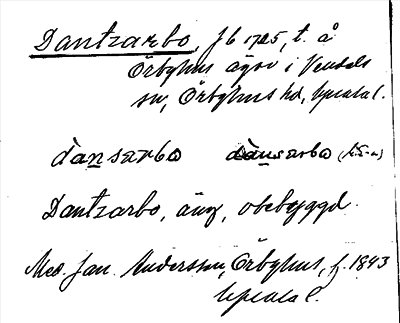 Dantzarbo, jb 1725, t. å
Örbyhus ägor i Vendels
sn, Örbyhus hd, Upsala l.
dansarbo dansarbo
Dantzarbo, äng, obebyggd.
Med. Jan. Andersson, Örbyhus, f. 1843
Upsala l.